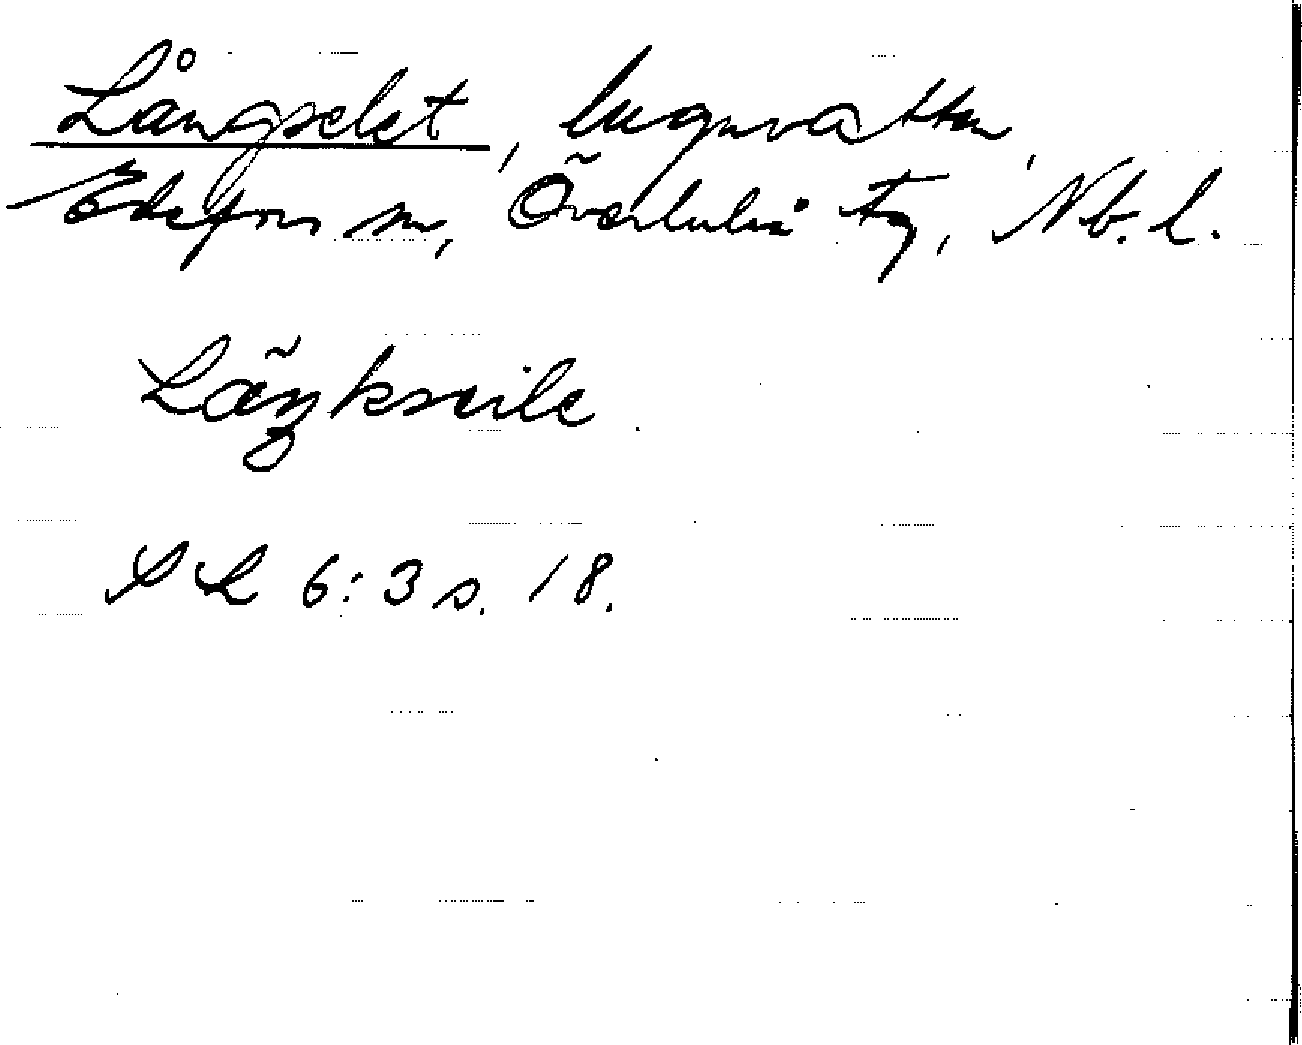 Långselet, lugnvatten,
Edefors sn, Överluleå tg, Nb. l.
Läŋkseile
SL 6:3 s. 18.